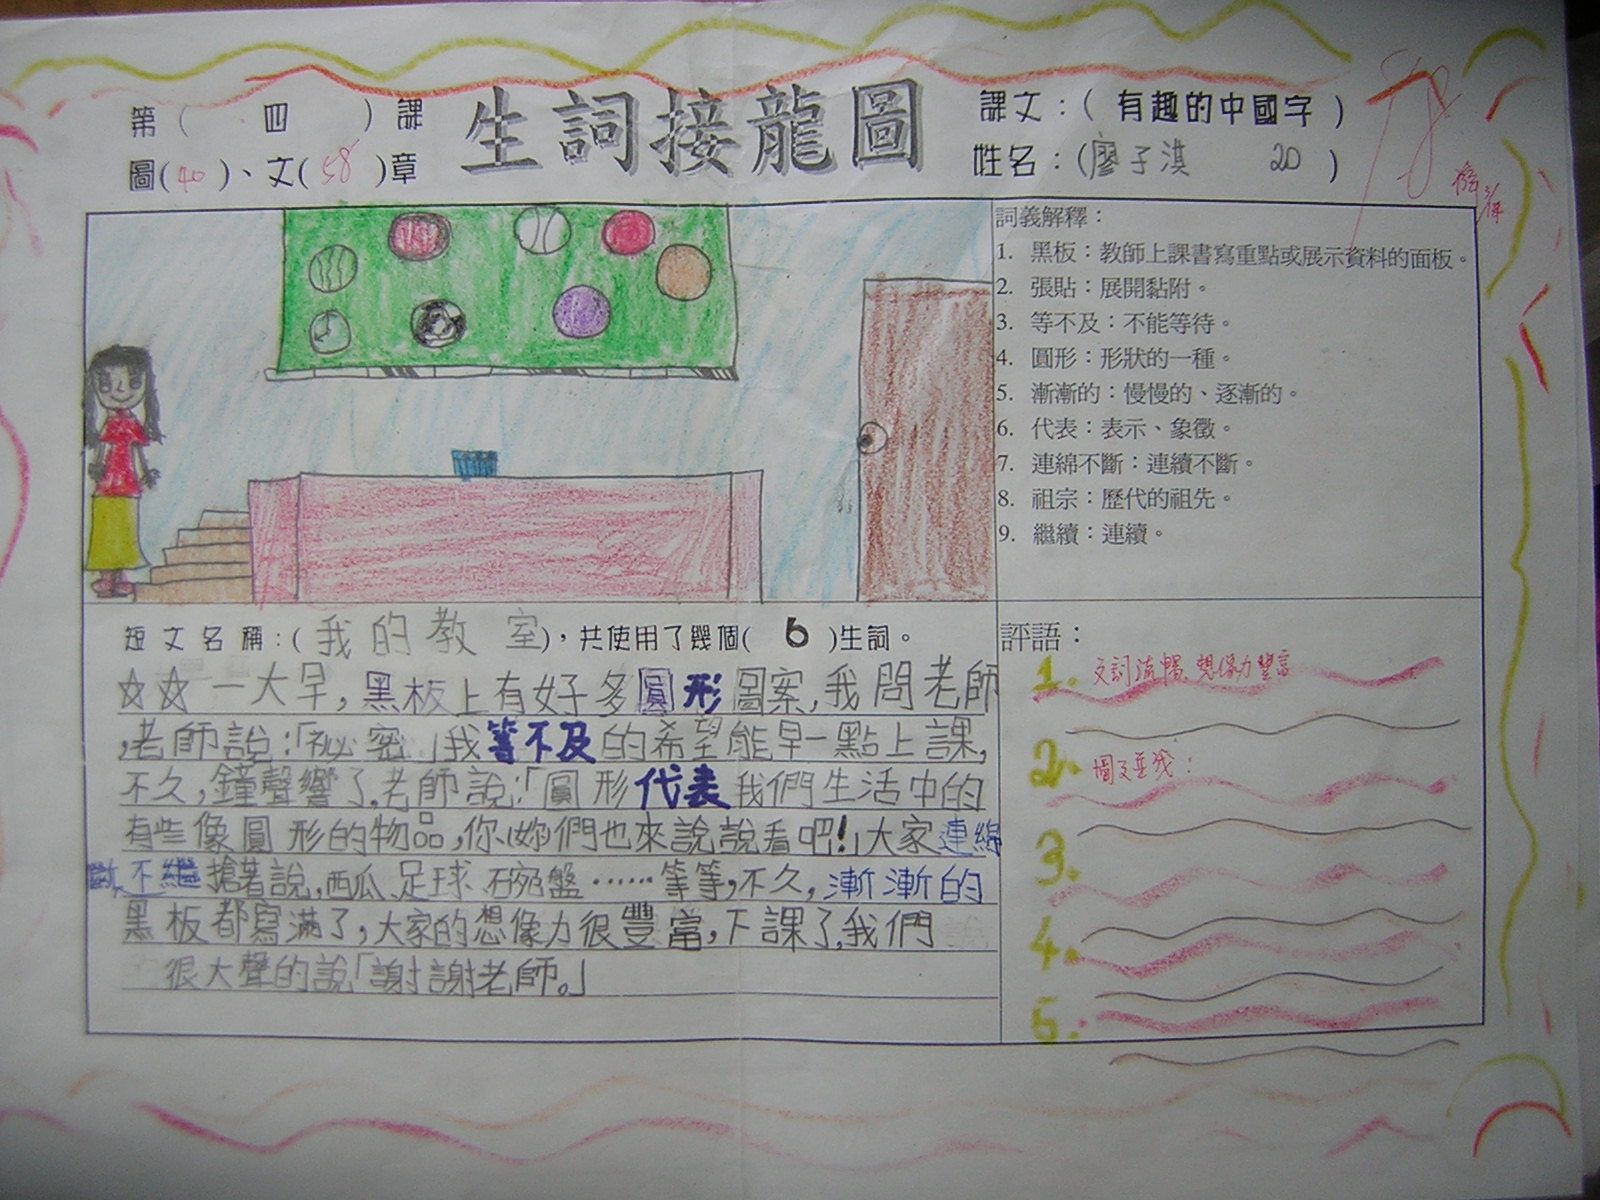 第( 四 )課
生詞接龍圖
課文：( 有趣的中國字 )
圖(40)、文(58)章
姓名：(廖子淇 20 )
98
詞義解釋：
1. 黑板：教師上課書寫重點或展示資料的面板。
2. 張貼：展開黏附。
3. 等不及：不能等待。
4. 圓形：形狀的一種。
5. 漸漸的：慢慢的、逐漸的。
6. 代表：表示、象徵。
7. 連綿不斷：連續不斷。
8. 祖宗：歷代的祖先。
9. 繼續：連續。
短文名稱：( 我的教室 )，共使用了幾個( 6 )生詞。
☆☆一大早，黑板上有好多圓形圖案，我問老師
，老師說：「祕密」我等不及的希望能早一點上課，
不久，鐘聲響了，老師說：「圓形代表我們生活中的
有些像圓形的物品，你/妳們也來說說看吧！」大家連綿
不繼搶著說，西瓜、足球、碗盤……等等，不久，漸漸的
黑板都寫滿了，大家的想像力很豐富，下課了，我們
很大聲的說「謝謝老師。」
評語：
1. 文詞流暢、想像力豐富
2. 圖文並茂！
3.
4.
5.